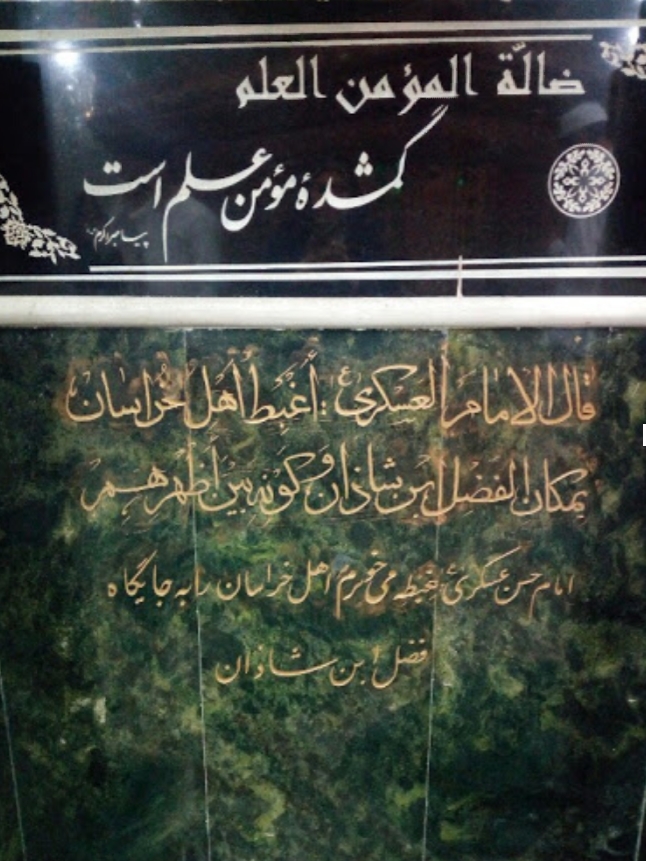 ضالّة المؤمن العلم
گمشدۀ مؤمن علم است
پیامبر اکرم
قال الامام العسکری (ع) : أغبط أهل الخراسان
بمکان الفضل ابن شاذان و کونه بین أظهرهم
امام حسن عسکری (ع) غبطه می خورم اهل خراسان را به جایگاه
فضل ابن شاذان